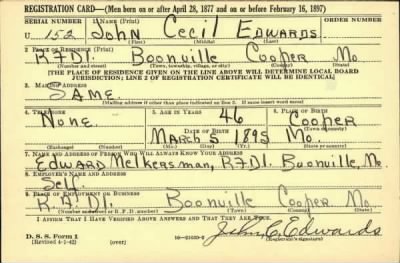 REGISTRATION CARD—(Men born on or after April 28, 1877 and on or before February 16, 1897)
SERIAL NUMBER 1. NAME (Print) ORDER NUMBER
U 152 John Cecil Edwards
(First) (Middle) (Last)
2. PLACE OF RESIDENCE (Print)
RFD1. Boonville Cooper Mo
(Number and street) (Town, township, village, or city) (County) (State)
[THE PLACE OF RESIDENCE GIVEN ON THE LINE ABOVE WILL DETERMINE LOCAL BOARD
JURISDICTION; LINE 2 OF REGISTRATION CERTIFICATE WILL BE IDENTICAL]
3. MAILING ADDRESS
Same.
[Mailing address if other than place indicated on line 2. If same insert word same]
4. TELEPHONE 5. AGE IN YEARS 6. PLACE OF BIRTH
None 46 Cooper
DATE OF BIRTH (Town or county)
March 5 1895 Mo.
(Exchange) (Number) (Mo.) (Day) (Yr.) (State or country)
7. NAME AND ADDRESS OF PERSON WHO WILL ALWAYS KNOW YOUR ADDRESS
Edward Melkersman, RFD1. Boonville, Mo.
8. EMPLOYER'S NAME AND ADDRESS
Self.
9. PLACE OF EMPLOYMENT OR BUSINESS
R.F.D1. Boonville Cooper Mo
(Number and street or R. F. D. number) (Town) (County) (State)
I AFFIRM THAT I HAVE VERIFIED ABOVE ANSWERS AND THAT THEY ARE TRUE.
D. S. S. Form 1
(Revised 4-1-42) (over) 16—21630-2 John C. Edwards
(Registrant's signature)